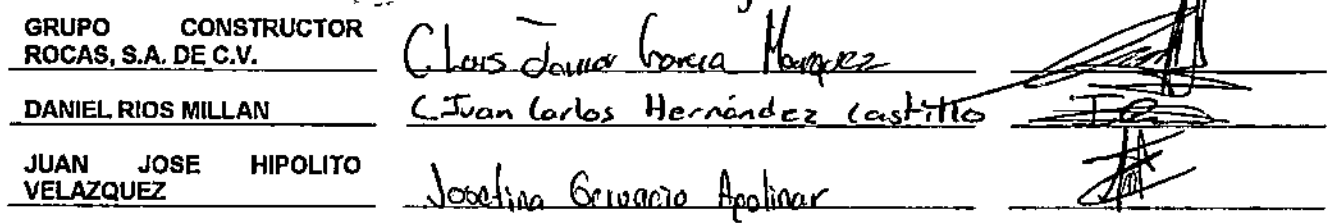 GRUPO CONSTRUCTOR
ROCAS, S.A. DE C.V.
C. Luis Javier Garcia Marquez
DANIEL RIOS MILLAN
C. Juan Carlos Hernández Castillo
JUAN JOSE HIPOLITO
VELAZQUEZ
Josefina Gervacio Apolinar